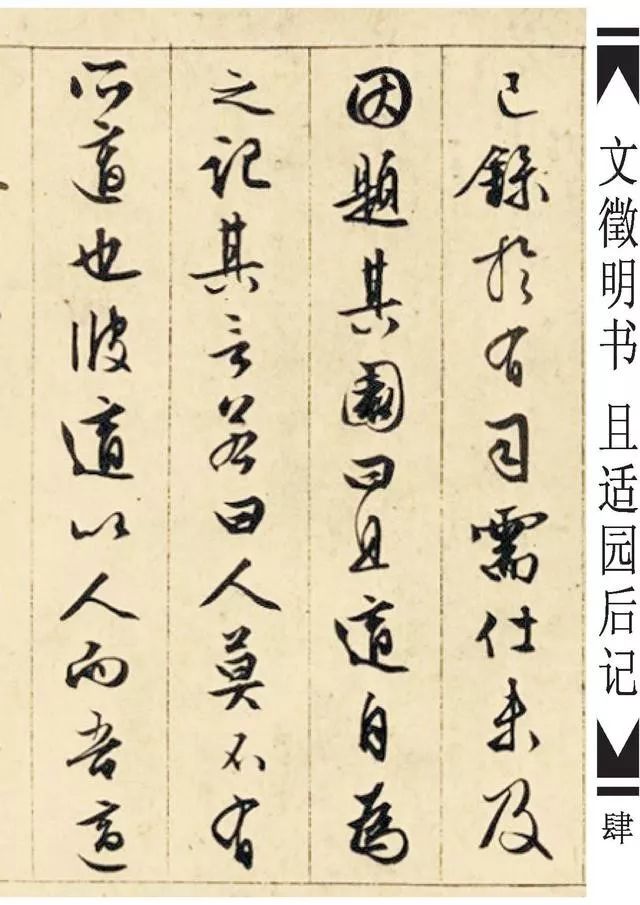 已錄於有司需仕未及
因題其園曰且適自為
之記其言若曰人莫不有
所適也彼適以人而吾適
文徵明书 且适园后记
肆